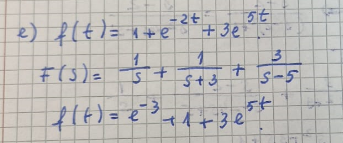 e) f(t) = 1 + e^{-2t} + 3e^{5t}
F(s) = \frac{1}{s} + \frac{1}{s+3} + \frac{3}{s-5}
f(t) = e^{-3} + 1 + 3e^{5t}